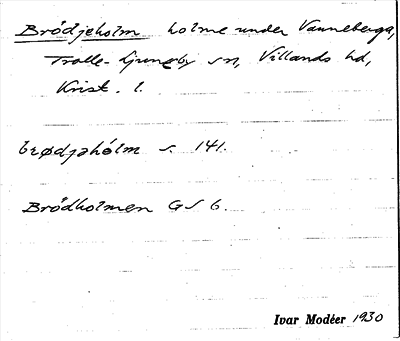 Brödjeholm holme under Vanneberga,
Trolle-Ljungby sn, Villands hd,
Krist. l.
brødjəhólm s. 141.
Brödholmen GS 6.
Ivar Modéer 1930